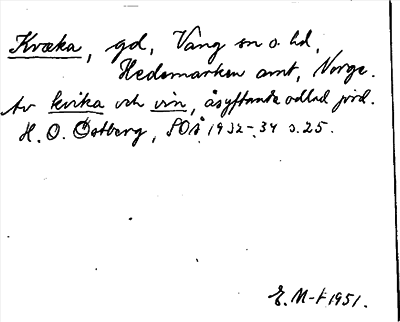 Kvæka, gd, Vang sn o. hd,
Hedemarken amt, Norge.
Av kvika och vin, åsyftande odlad jord.
H. O. Østberg, SOÅ 1932-34 s. 25.
E. M-t 1951.